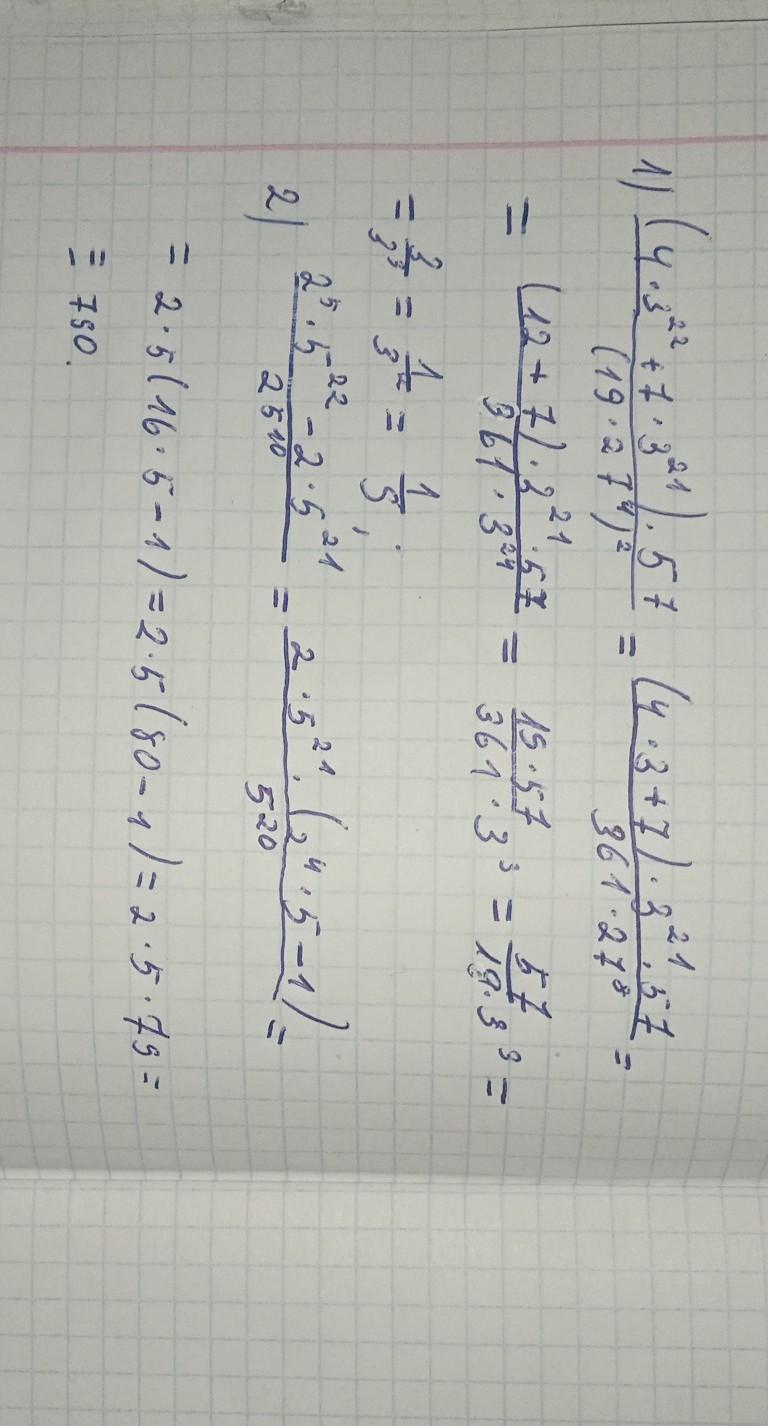 1) ((4·3²² + 7·3²¹)·57)/(19·27⁴)² = ((4·3+7)·3²¹·57)/(361·27⁸) =
= ((12+7)·3²¹·57)/(361·3²⁴) = (19·57)/(361·3³) = 57/(19·3³) =
= 3/3³ = 1/3² = 1/9;
2) (2⁵·5²² - 2·5²¹)/25¹⁰ = (2·5²¹·(2⁴·5-1))/5²⁰ =
= 2·5(16·5-1) = 2·5(80-1) = 2·5·79 =
= 790.